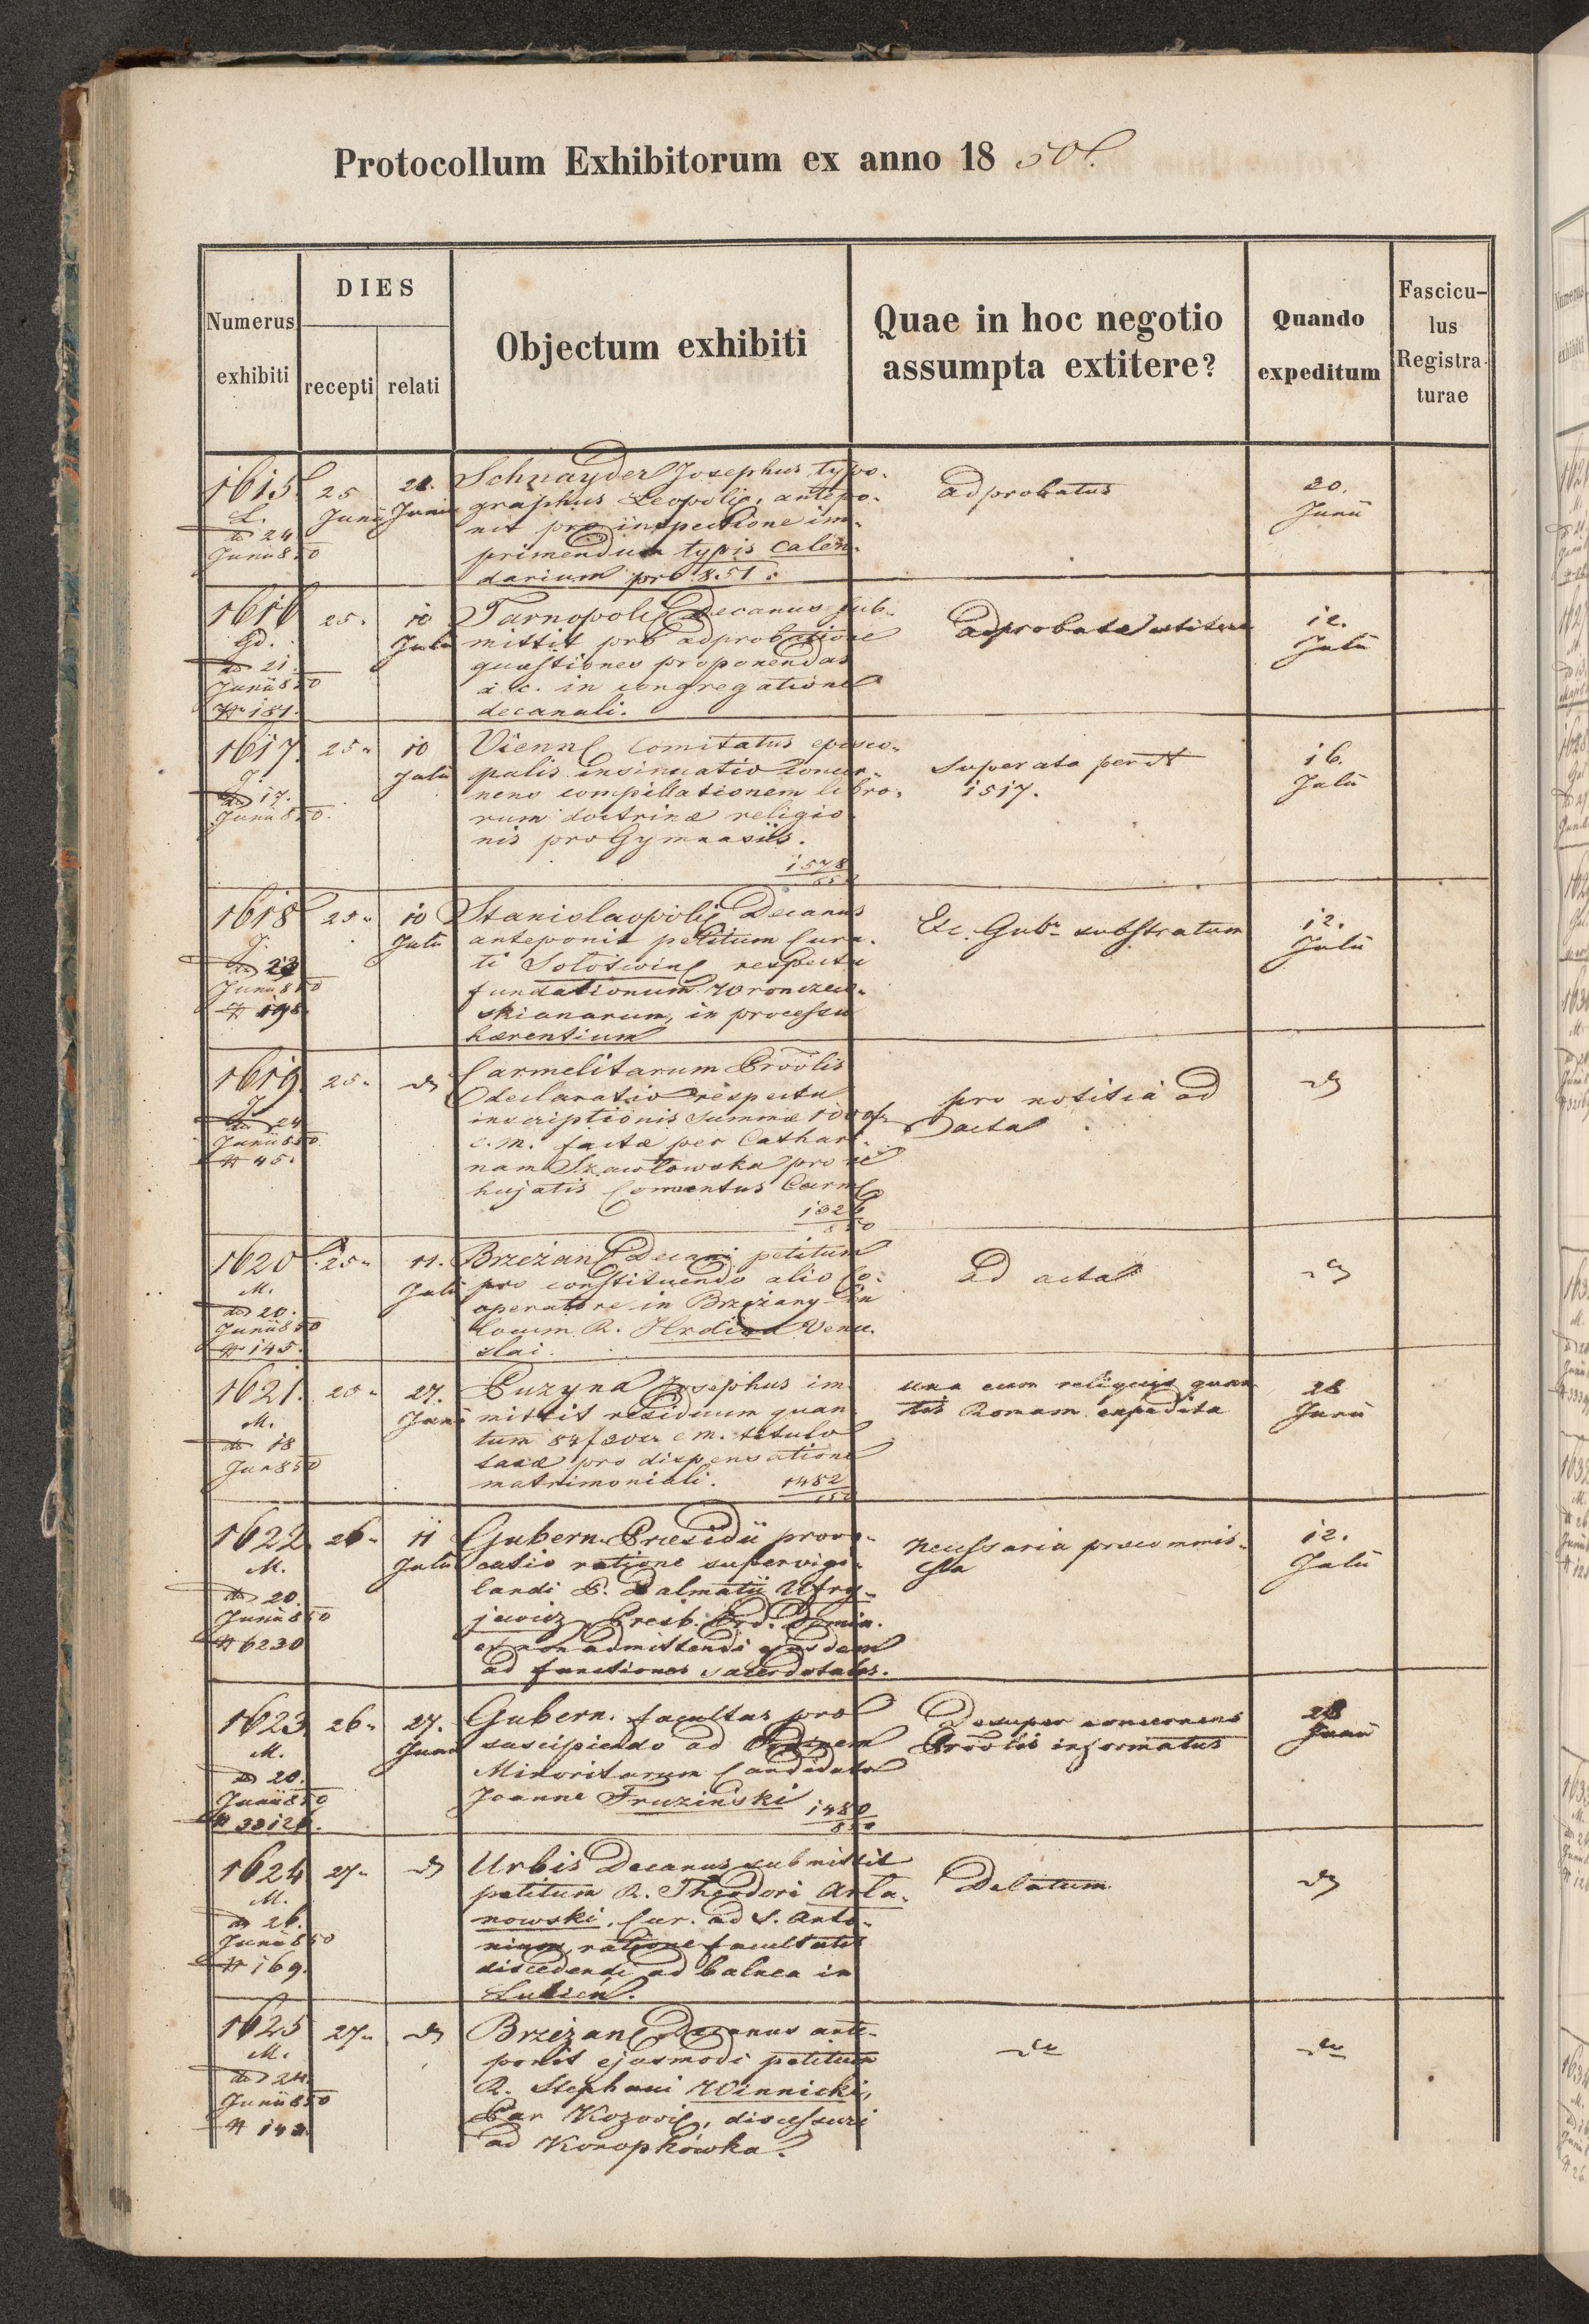 Protocollum Exhibitorum ex anno 18 50.
Numerus exhibiti
DIES
recepti
relati
Objectum exhibiti
Quae in hoc negotio assumpta extitere?
Quando expeditum
Fascicu-
lus
Registra-
turae
1615. 25 Junii
L.
dto 24
Junii 850
Junii
Schnayder Josephus typo-
graphus Leopolię, antepo-
nit pro inspectione im-
primendum typis Calen-
darium pro 851.
adprobatus
20.
Junii
1616 25.
Gd.
dto 21.
Junii 850
# 181.
10
Julii
Tarnopolię Decanus sub-
mittit pro adprobatione
quæstiones proponendas
a. c. in congregatione
decanali.
adprobatae
12.
Julii
1617. 25"
J.
dto 17.
Junii 850.
10
Julii
Viennę Comitatus episco-
palis insinuatio concer-
nens compillationem libro-
rum doctrinæ religio
nis pro Gymnasiis.
1578
850
superata per #
1517.
16.
Julii
1618 25"
J.
dto 23
Junii 850
# 198.
10
Julii
Stanislaopolię Decanus
anteponit petitum Cura-
ti Sołotwinę respectu
fundationum Woronczew-
skianarum, in processu
hærentium
Exc. Gubr. substratum
12.
Julii
1619. 25"
J.
dto 24
Junii 850
# 45.
dto
Carmelitarum Provlis
declaratio respectu
inscriptionis summæ 100 f
c. m. factæ per Cathari-
nam Szawłowska pro re
hujatis Conventus Carm.
132
850
pro notitia ad
acta
dto
1620. 25"
M.
dto 20.
Junii 850
# 145.
11.
Julii
Brzeżanę Decani petitum
pro constituendo alio Co-
operatore in Brzeżany in
locum R. Hrdina Vence-
slai.
ad acta
dto
1621. 25"
M.
dto 18
Jun 850
27.
Junii
Puzyna Josephus im-
mittit residuum quan-
tum 84 f 20 xr c m. titulo
taxæ pro dispensatione
matrimoniali. 1482
850
una cum reliquis quan-
tis Romam expedita
28
Junii
1622. 26"
M.
dto 20.
Junii 850
# 6230
11
Julii
Gubern. Præsidii provo-
catio ratione supervigi-
landi P. Dalmatii Ufry-
jewicz Presb. Ord. Domin.
et non admittendi ejusdem
ad functiones sacerdotales.
necessaria præcommis-
sa
12.
Julii
1623 26"
M.
dto 20.
Junii 850
# 33126.
27.
Junii
Gubern. facultas pro
suscipiendo ad Ordinem
Minoritarum Candidato
Joanne Fruzinski 1480
850
Desuper concernens
Provlis informatus
28
Junii
1624 27"
M.
dto 26.
Junii 850
# 169.
dto
Urbis Decanus submittit
petitum R. Theodori Arła-
nowski, Cur. ad S. Anto-
nium, ratione facultatis
discedendi ad balnea in
Lubień.
Delatum
dto
1625 27"
M.
dto 24.
Junii 850
dto
Brzeżanę Decanus ante-
ponit ejusmodi petitum
R. Stephani Winnicki,
Par Kozovię, discessuri
ad Konopkówka.
dto
dto